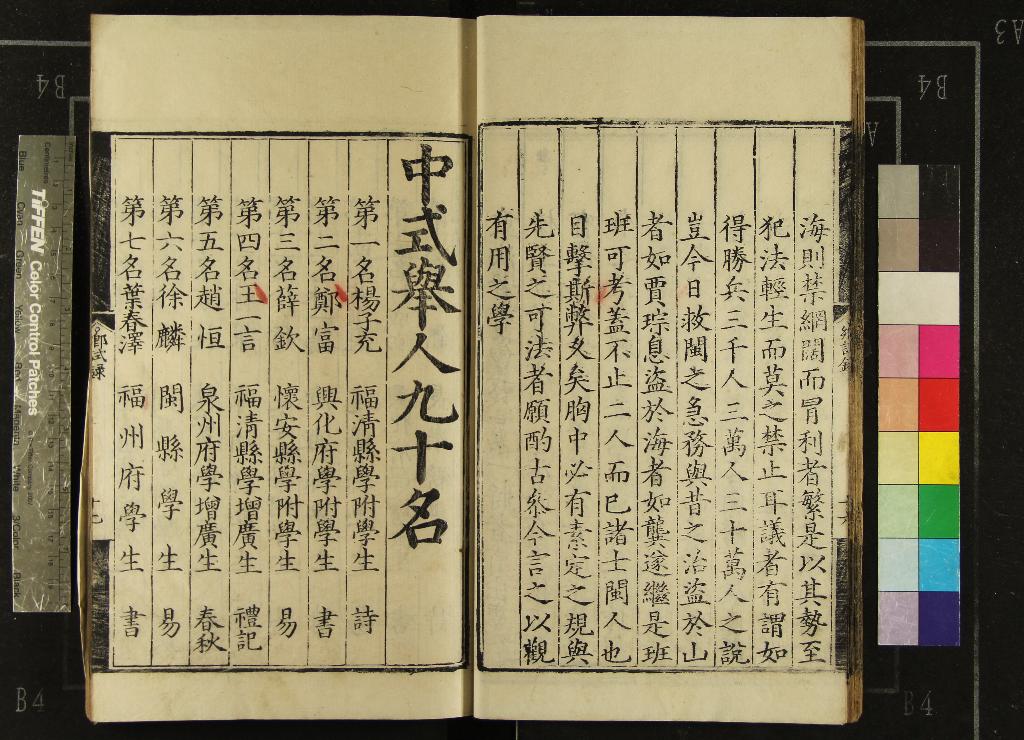 海則禁網闊而冒利者繁是以其勢至
犯法輕生而莫之禁止耳議者有謂如
得勝兵三千人三萬人三十萬人之說
豈今日救閩之急務與昔之治盜於山
者如賈琮息盜於海者如龔遂繼是班
班可考蓋不止二人而已諸士閩人也
目擊斯弊久矣胸中必有素定之規與
先賢之可法者願酌古參今言之以觀
有用之學
中式舉人九十名
第一名楊子充 福清縣學附學生 詩
第二名鄭富 興化府學附學生 書
第三名薛欽 懷安縣學附學生 易
第四名王一言 福清縣學增廣生 禮記
第五名趙恒 泉州府學增廣生 春秋
第六名徐麟 閩縣學生 易
第七名葉春澤 福州府學生 書
TIFFEN Color Control Patches
B4
B4
B4
B4
A3
A